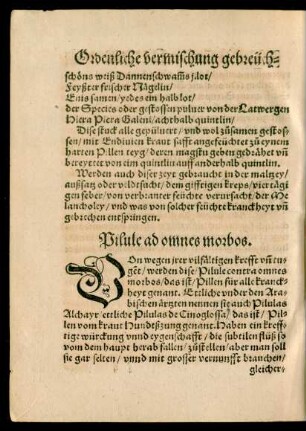 Ordenliche vermischung gebreüch-
schöns weiß Dannenschwams j.lot/
Feyßter frischer Nägelin/
Enis samen/yedes ein halb lot/
der Species oder gestossen puluer von der Latwergen
Hiera Picra Galeni/achthalb quintlin/
Dise stuck alle gepülüert/vnd wol zůsamen gestos-
sen/mit Endiuien kraut safft angefeüchtet zů eynem
harten Pillen teyg/deren magstu geben gedräbet vñ
bereyttet von eim quintlin auff anderhalb quintlin.
Werden auch diser zeyt gebraucht in der maltzey/
außsatz oder vildtsucht/dem gifftigen kreps/viertägi
gen feber/von verbanter feüchte verursacht/der Me
lancholey/vnd was von solcher feücht kranckheyt vñ
gebrechen entspringen.
Pilule ad omnes morbos.
Von wegen jrer vilfältigen krefft vñ tu-
gēt/werden dise/Pilule contra omnes
morbos/das ist/Pillen für alle kranck-
heyt genant. Ettliche vnder den Ara-
bischen ärtzten nennen sie auch Pilulas
Alchayr/ettliche Pilulas de Cinoglossa/das ist/Pil-
len vom kraut Hundtßzung genant. Haben ein kreffti-
ge würckung vnnd eygenschafft/die subtilen flüß so
vom dem haupt herab fallen/zůstellen/aber man soll
sie gar selten/vnnd mit grosser vernunfft brauchen/
gleicher-